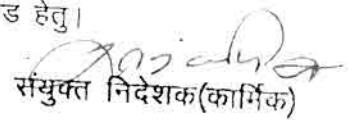 ड हेतु।
संयुक्त निदेशक(कार्मिक)